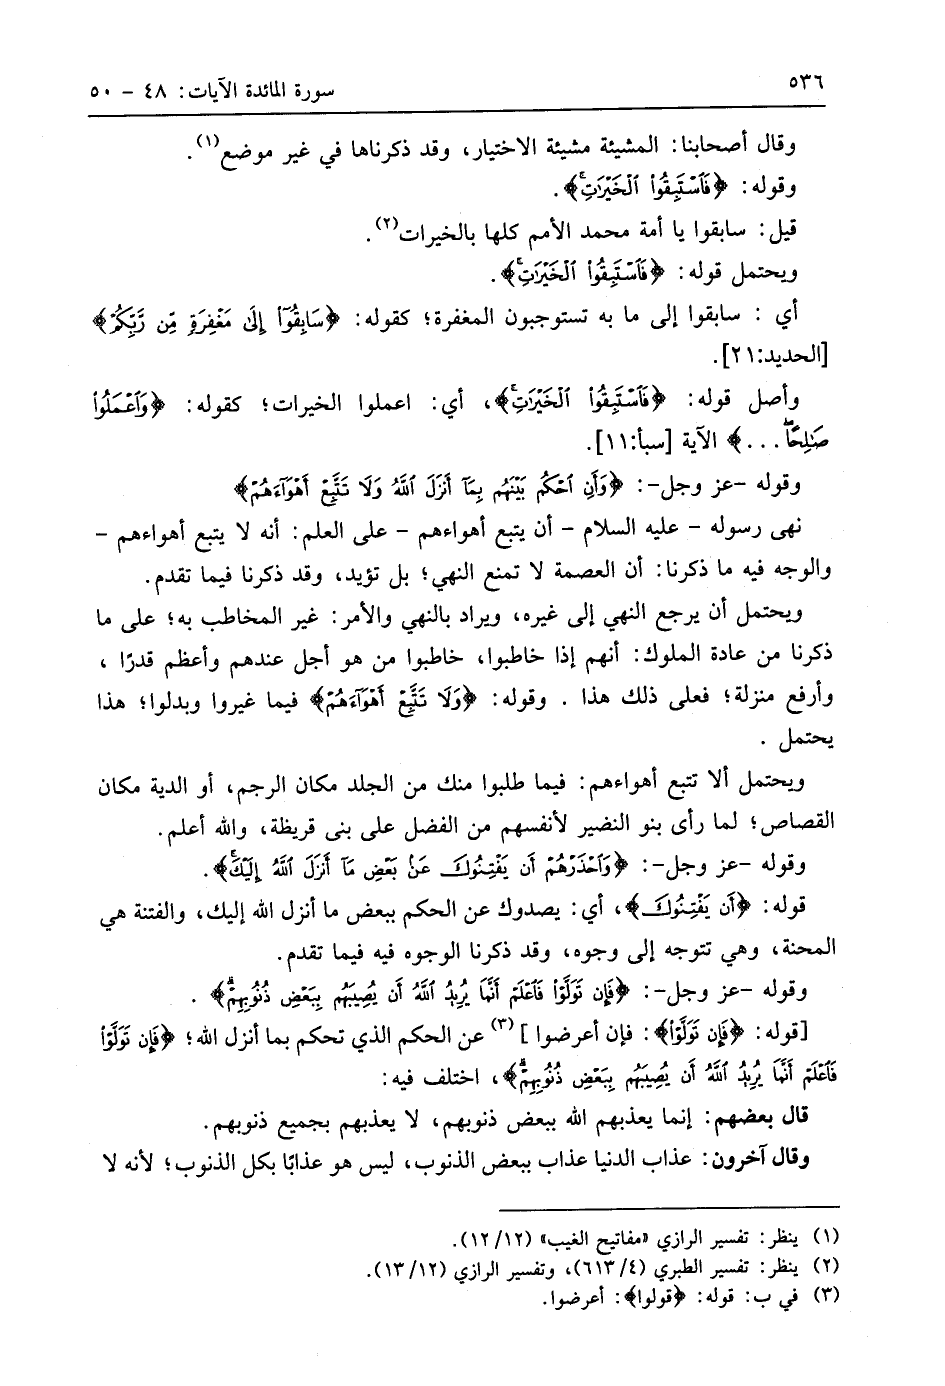 ٥٣٦
سورة المائدة الآيات: ٤٨ - ٥٠
وقال أصحابنا: المشيئة مشيئة الاختيار، وقد ذكرناها في غير موضع(١).
وقوله: ﴿فَٱسْتَبِقُوا۟ ٱلْخَيْرَٰتِۚ﴾.
قيل: سابقوا يا أمة محمد الأمم كلها بالخيرات(٢).
ويحتمل قوله: ﴿فَٱسْتَبِقُوا۟ ٱلْخَيْرَٰتِۚ﴾.
أي : سابقوا إلى ما به تستوجبون المغفرة؛ كقوله: ﴿سَابِقُوٓا۟ إِلَىٰ مَغْفِرَةٍ مِّن رَّبِّكُمْ﴾
[الحديد:٢١].
وأصل قوله: ﴿فَٱسْتَبِقُوا۟ ٱلْخَيْرَٰتِۚ﴾، أي: اعملوا الخيرات؛ كقوله: ﴿وَٱعْمَلُوا۟
صَٰلِحًاۖ...﴾ الآية [سبأ:١١].
وقوله -عز وجل-: ﴿وَأَنِ ٱحْكُم بَيْنَهُم بِمَآ أَنزَلَ ٱللَّهُ وَلَا تَتَّبِعْ أَهْوَآءَهُمْ﴾
نهى رسوله - عليه السلام - أن يتبع أهواءهم - على العلم: أنه لا يتبع أهواءهم -
والوجه فيه ما ذكرنا: أن العصمة لا تمنع النهي؛ بل تؤيد، وقد ذكرنا فيما تقدم.
ويحتمل أن يرجع النهي إلى غيره، ويراد بالنهي والأمر: غير المخاطب به؛ على ما
ذكرنا من عادة الملوك: أنهم إذا خاطبوا، خاطبوا من هو أجل عندهم وأعظم قدرًا ،
وأرفع منزلة؛ فعلى ذلك هذا . وقوله: ﴿وَلَا تَتَّبِعْ أَهْوَآءَهُمْ﴾ فيما غيروا وبدلوا؛ هذا
يحتمل .
ويحتمل ألا تتبع أهواءهم: فيما طلبوا منك من الجلد مكان الرجم، أو الدية مكان
القصاص؛ لما رأى بنو النضير لأنفسهم من الفضل على بنى قريظة، والله أعلم.
وقوله -عز وجل-: ﴿وَٱحْذَرْهُمْ أَن يَفْتِنُوكَ عَنۢ بَعْضِ مَآ أَنزَلَ ٱللَّهُ إِلَيْكَۖ﴾.
قوله: ﴿أَن يَفْتِنُوكَ﴾، أي: يصدوك عن الحكم ببعض ما أنزل الله إليك، والفتنة هي
المحنة، وهي تتوجه إلى وجوه، وقد ذكرنا الوجوه فيه فيما تقدم.
وقوله -عز وجل-: ﴿فَإِن تَوَلَّوْا۟ فَٱعْلَمْ أَنَّمَا يُرِيدُ ٱللَّهُ أَن يُصِيبَهُم بِبَعْضِ ذُنُوبِهِمْۗ﴾ .
[قوله: ﴿فَإِن تَوَلَّوْا۟﴾: فإن أعرضوا ](٣) عن الحكم الذي تحكم بما أنزل الله؛ ﴿فَإِن تَوَلَّوْا۟
فَٱعْلَمْ أَنَّمَا يُرِيدُ ٱللَّهُ أَن يُصِيبَهُم بِبَعْضِ ذُنُوبِهِمْۗ﴾، اختلف فيه:
قال بعضهم: إنما يعذبهم الله ببعض ذنوبهم، لا يعذبهم بجميع ذنوبهم.
وقال آخرون: عذاب الدنيا عذاب ببعض الذنوب، ليس هو عذابًا بكل الذنوب؛ لأنه لا
(١) ينظر: تفسير الرازي «مفاتيح الغيب» (١٢/١٢).
(٢) ينظر: تفسير الطبري (٦١٣/٤)، وتفسير الرازي (١٣/١٢).
(٣) في ب: قوله: ﴿قولوا﴾: أعرضوا.